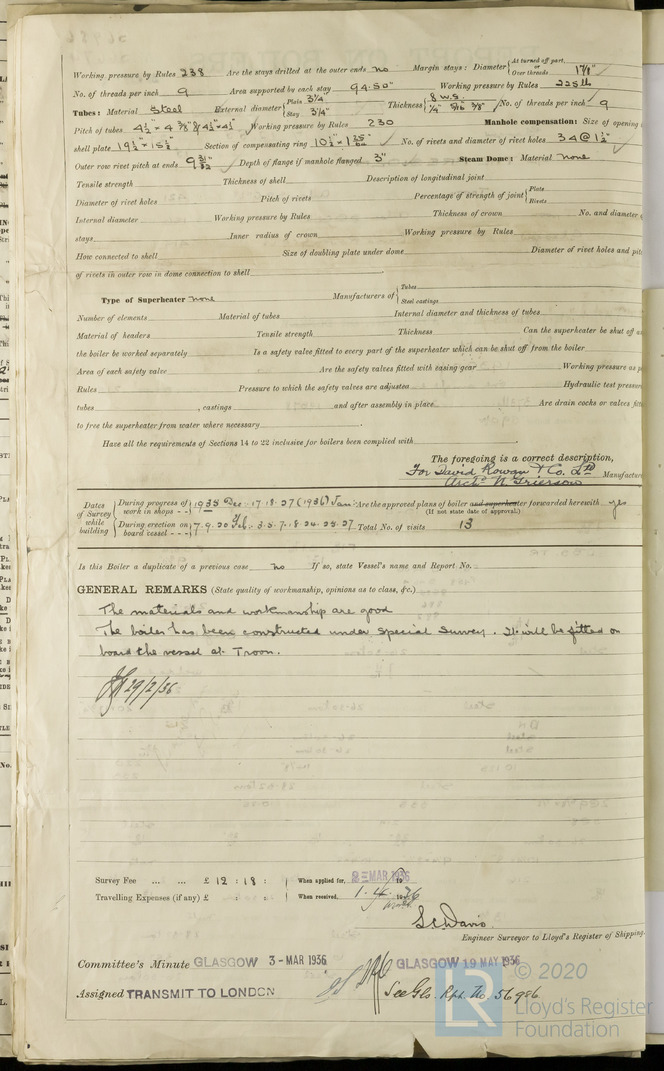 Working pressure by Rules 238 Are the stays drilled at the outer ends no Margin stays: Diameter { At turned off part, or Over threads 1 7/8"
No. of threads per inch 9 Area supported by each stay 94.50" Working pressure by Rules 225 lb
Tubes: Material Steel External diameter { Plain 3 1/4 Stay 3 1/4" Thickness { 8 W.G. 1/4" 5/16 3/8" No. of threads per inch 9
Pitch of tubes 4 1/2" × 4 3/8" & 4 1/2" × 4 1/2" Working pressure by Rules 230 Manhole compensation: Size of opening
shell plate 19 1/2" × 15 1/2" Section of compensating ring No. of rivets and diameter of rivet holes 34 @ 1 1/2"
Outer row rivet pitch at ends 9 31/32 Depth of flange if manhole flanged 3" Steam Dome: Material none
Tensile strength Thickness of shell Description of longitudinal joint
Diameter of rivet holes Pitch of rivets Percentage of strength of joint { Plate Rivets
Internal diameter Working pressure by Rules Thickness of crown No. and diameter
stays Inner radius of crown Working pressure by Rules
How connected to shell Size of doubling plate under dome Diameter of rivet holes and
of rivets in outer row in dome connection to shell
Type of Superheater none Manufacturers of { Tubes Steel castings
Number of elements Material of tubes Internal diameter and thickness of tubes
Material of headers Tensile strength Thickness Can the superheater be shut off
the boiler be worked separately Is a safety valve fitted to every part of the superheater which can be shut off from the boiler
Area of each safety valve Are the safety valves fitted with easing gear Working pressure as
Rules Pressure to which the safety valves are adjusted Hydraulic test pressure
tubes , castings and after assembly in place Are drain cocks or valves
to free the superheater from water where necessary
Have all the requirements of Sections 14 to 22 inclusive for boilers been complied with
The foregoing is a correct description,
For David Rowan & Co. Ltd
Archd N Grierson Manufactur
Dates of Survey while building { During progress of work in shops - - 1935 Dec. 17.18.27 (1936) Jan: Are the approved plans of boiler and superheater forwarded herewith yes
(If not state date of approval.)
During erection on board vessel - - - 7.9.20 Feb. 3.5.7.18.24.25.27 Total No. of visits 13
Is this Boiler a duplicate of a previous case no If so, state Vessel's name and Report No.
GENERAL REMARKS (State quality of workmanship, opinions as to class, &c.)
The materials and workmanship are good
The boiler has been constructed under Special Survey. It will be fitted on
board the vessel at Troon.
29/2/36
Survey Fee ... ... £ 12 : 18 : When applied for, 2 - MAR 1936
Travelling Expenses (if any) £ : : When received, 1.4.36
S C Davis
Engineer Surveyor to Lloyd's Register of Shipping.
Committee's Minute GLASGOW 3 - MAR 1936 GLASGOW 19 MAY 1936
Assigned TRANSMIT TO LONDON See Gls. Rpt. No. 56986
© 2020
LR
Lloyd's Register
Foundation